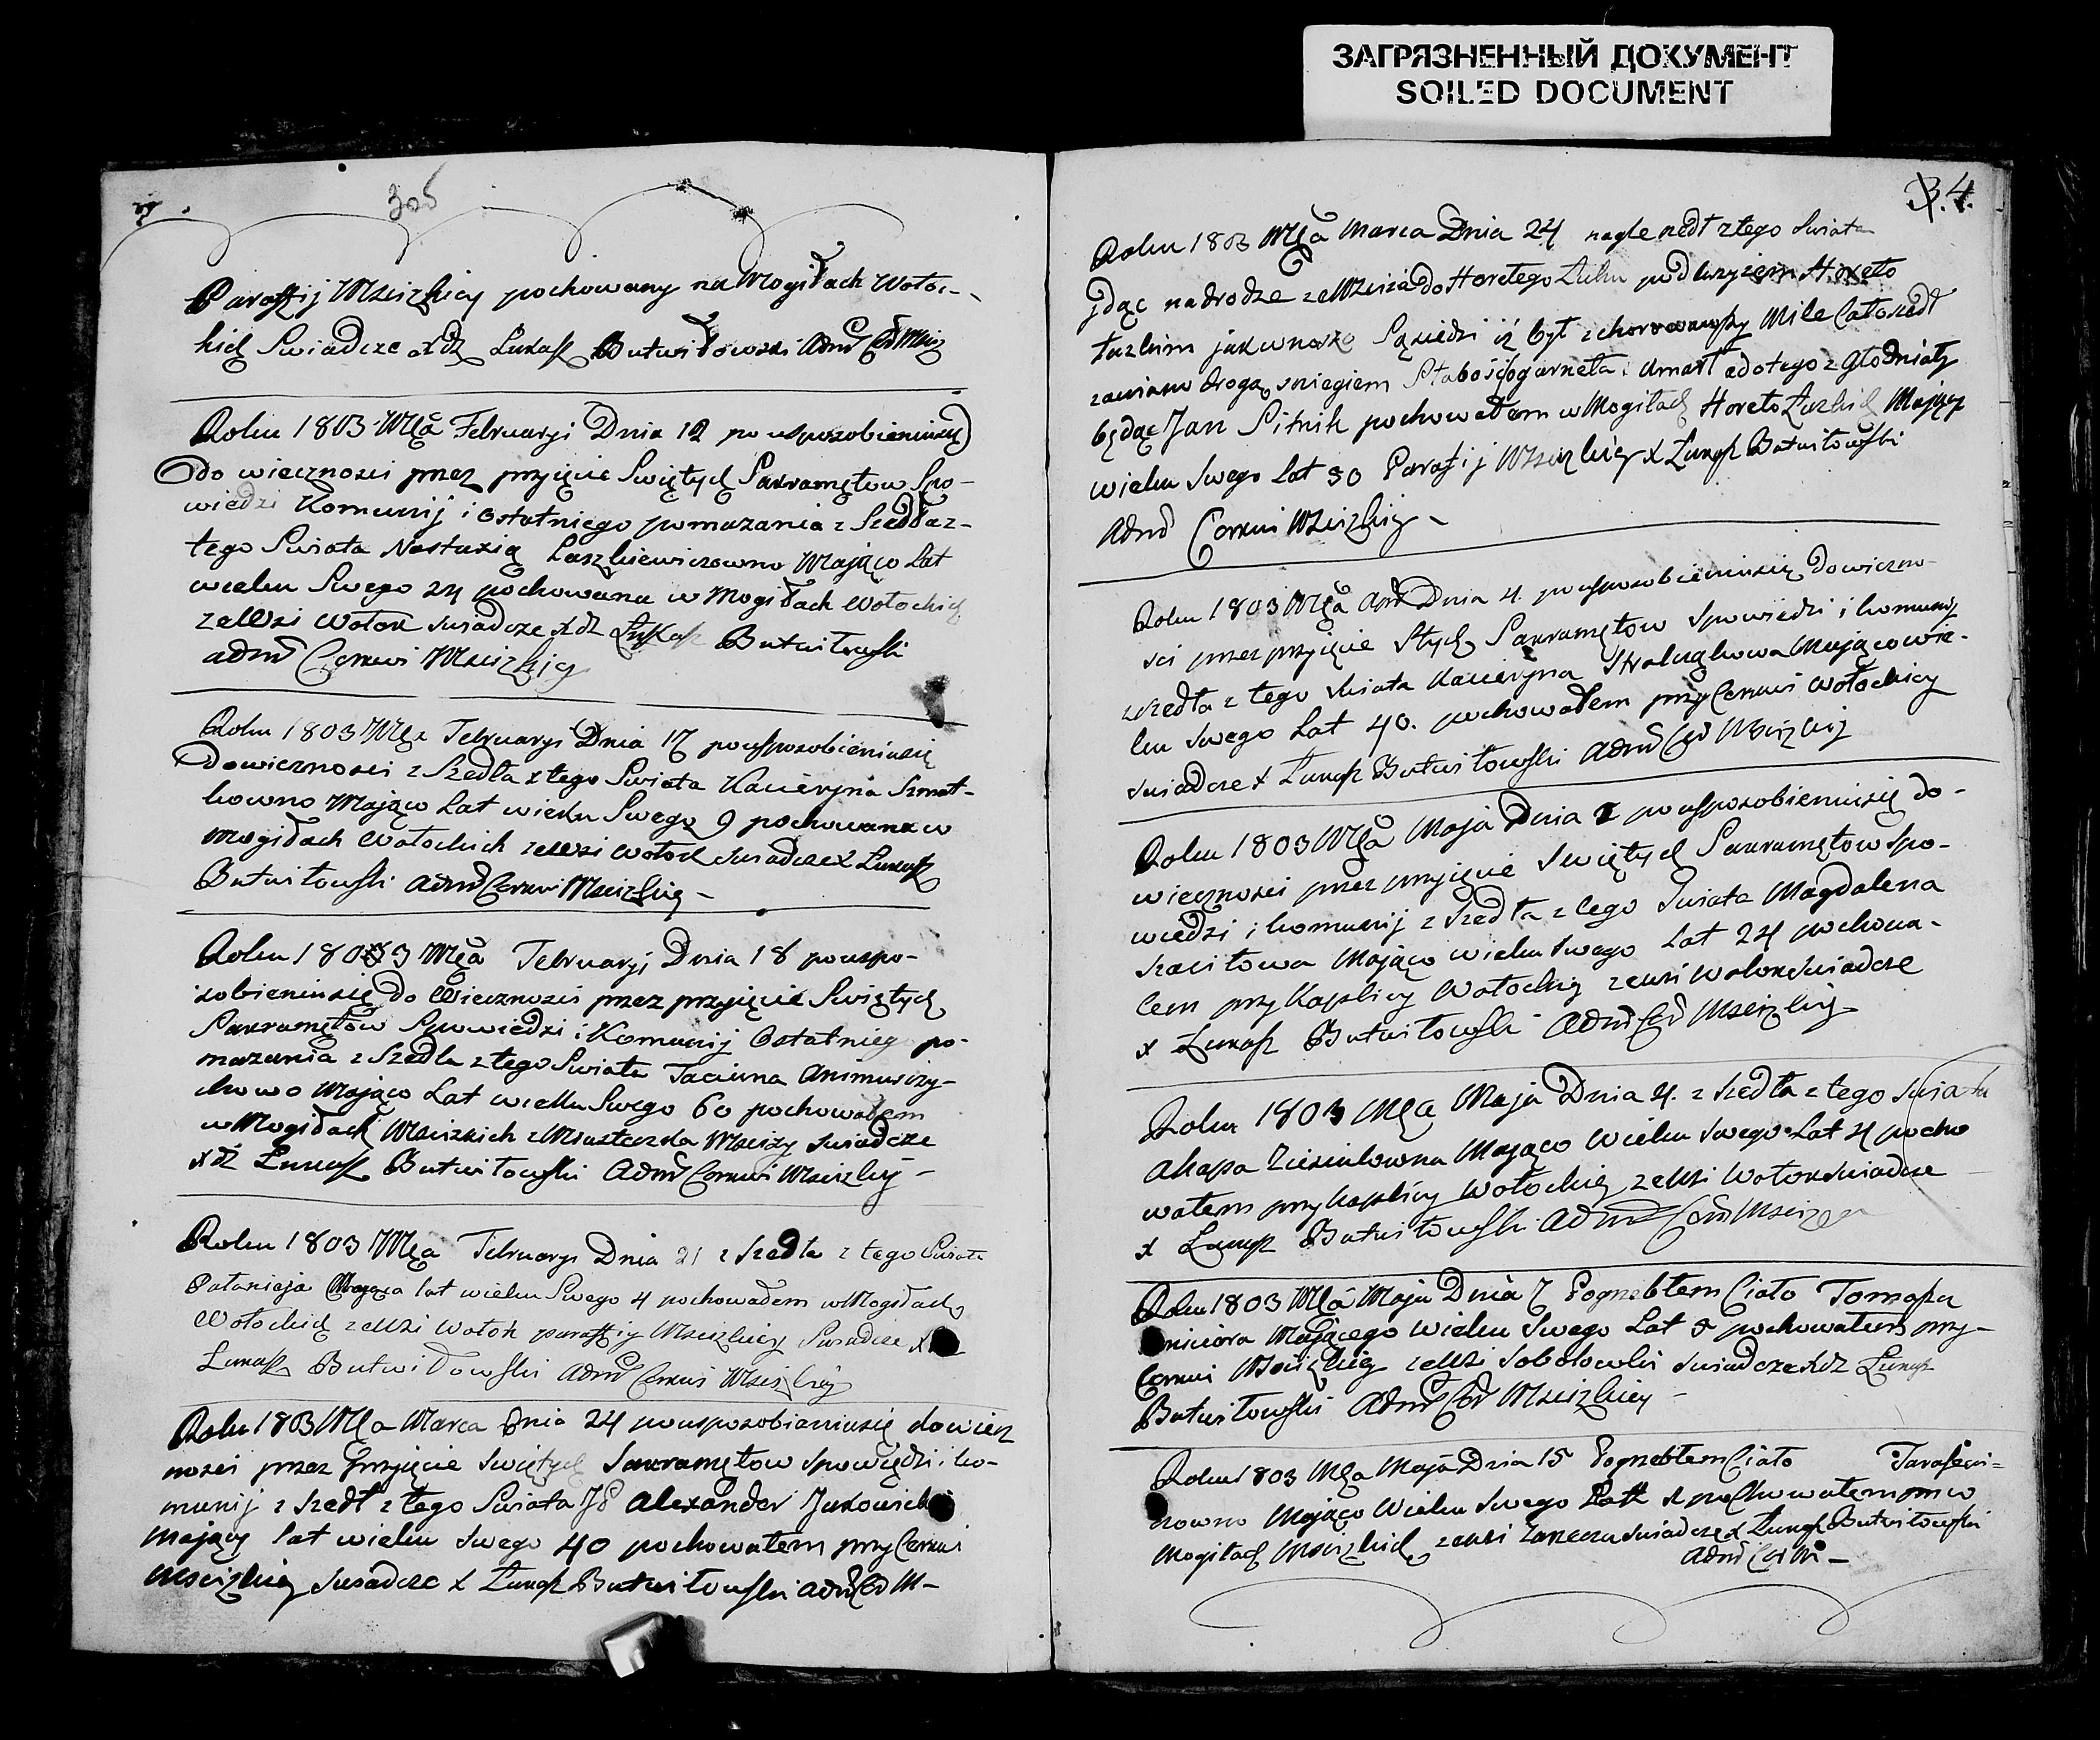 ЗАГРЯЗНЕННЫЙ ДОКУМЕНТ
SOILED DOCUMENT
305
Parafij Mscizkiey pochowany na Mogiłach Wołoc-
kich Swiadcze xdz Łukasz Butwiłowski Adm Cer Msciz
Roku 1803 Mca Februaryi Dnia 12 po usposobieniusię
do wiecznosci przez przyięcie Swiętych Sakramętow Spo-
wiedzi Komunij i Ostatniego pomazania z Szedła z-
tego Swiata Nastazią Laszkiewiczowno Maiąco Lat
wieku Swego 24 pochowana w Mogiłach Wołockich
ze Wsi Wołok swiadcze xdz Łukasz Butwiłowski
adm Cerkwi Mscizkiey
Roku 1803 Mca Februaryi Dnia 17 po usposobieniusię
do wiecznosci z Szedła z tego Swiata Kacieryna Szmat-
kowno Maiąco Lat wieku Swego 9 pochowana w
Mogiłach Wołockich ze wsi Wołok swiadcze x Łukasz
Butwiłowski Adm Cerkwi Mscizkiey -
Roku 1803 Mca Februaryj Dnia 18 po uspo-
sobieniusię do Wiecznosci przez przyięcie Swiętych
Sakramętow Spowiedzi i Komunij Ostatniego po-
mazania z Szedła z tego Swiata Taciana Animucizy-
chowo Maiąco Lat wieku Swego 60 pochowałem
w Mogiłach Mscizkich z Miasteczka Mscizy swiadcze
xdz Łukasz Butwiłowski Adm Cerkwi Mscizkiy -
Roku 1803 Mca Februaryi Dnia 21 z Szedła z tego Swiata
Pałanieja Maiąca lat wieku Swego 4 pochowałem w Mogiłach
Wołockich ze Wsi Wołok parafij Mscizkiey Swiadcze x
Łukasz Butwiłowski Adm Cerkwi Mscizkiey
Roku 1803 Mca Marca Dnia 24 po usposobianiusię dowiecz
nosci przez Przyięcie Swiętych Sakramętow Spowiędzi i ko-
munij z Szedł z tego Swiata JP Alexander Jukowick
Maiący lat wieku swego 40 pochowałem przy Cerkwi
Mscizkiey swiadcze x Łukasz Butwiłowski Adm Cer M-
34.
Roku 1803 Mca Marca Dnia 24 nagle szedł z tego swiata
jdąc na drodze ze Mscizia do Horełego Łuhu pod krzyżem Horeło
łuzkim jak wnosze Sąsiedzi iż był zchorowawszy Mile Cało szedł
zawiano drogą sniegiem Słabość ogarneła i umarł a do tego zgłodniały
będąc Jan Sitnik pochowałem w Mogiłach Horeło Łuzkich Maiący
wieku swego Lat 30 Parafij Mscizkiey x Łukasz Butwiłowski
Adm Cerkwi Mscizkiey -
Roku 1803 Mca Apr Dnia 4. po usposobieniusię do wiczno-
sci przez przyięcie Stych Sakramętow Spowiedzi i komunij
z szedła z tego swiata Kacieryna Maiąco wie-
ku swego Lat 40. pochowałem przy Cerkwi Wołockiey
swiadcze x Łukasz Butwiłowski Adm Cer Mscizkiy
Roku 1803 Mca Maja Dnia 2 po usposobieniusię do-
wiecznosci przez przyięcie Swiętych Sakramętow Spo-
wiedzi i komunij z Szedła z tego Swiata Magdalena
Szaciłowa Maiąco wieku swego Lat 24 pochowa-
łem przy Kaplicy Wołockiey ze wsi Wołok swiadcze
x Łukasz Butwiłowski Adm Cer Mscizkiey
Roku 1803 Mca Maja Dnia 4. z Szedła z tego swiata
Ahapa Maiąco Wieku swego Lat 4 pocho
wałem przy Kaplicy Wołockiey ze Wsi Wołok swiadcze
x Łukasz Butwiłowski Adm Cer
Roku 1803 Mca Maja Dnia 7 Pogrzebłem Ciało Tomasza
Maiącego Wieku Swego Lat 8 pochowałem przy-
Cerkwi Mscizkiey ze Wsi Sobolowki swiadcze xdz Łukasz
Butwiłowski Adm Cer Mscizkiey -
Roku 1803 Mca Maja Dnia 15 Pogrzebłem Ciało Tarasewi-
czowno Maiąco Wieku Swego Lat pochowałem w
Mogiłach Mscizkich ze wsi swiadcze x Łukasz Butwiłowski
Adm Cer M -